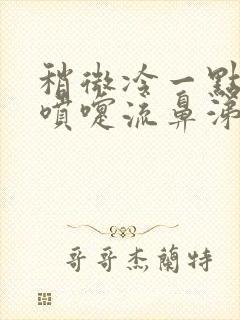 稍微冷一點
噴嚏流鼻涕
哥哥杰蘭特